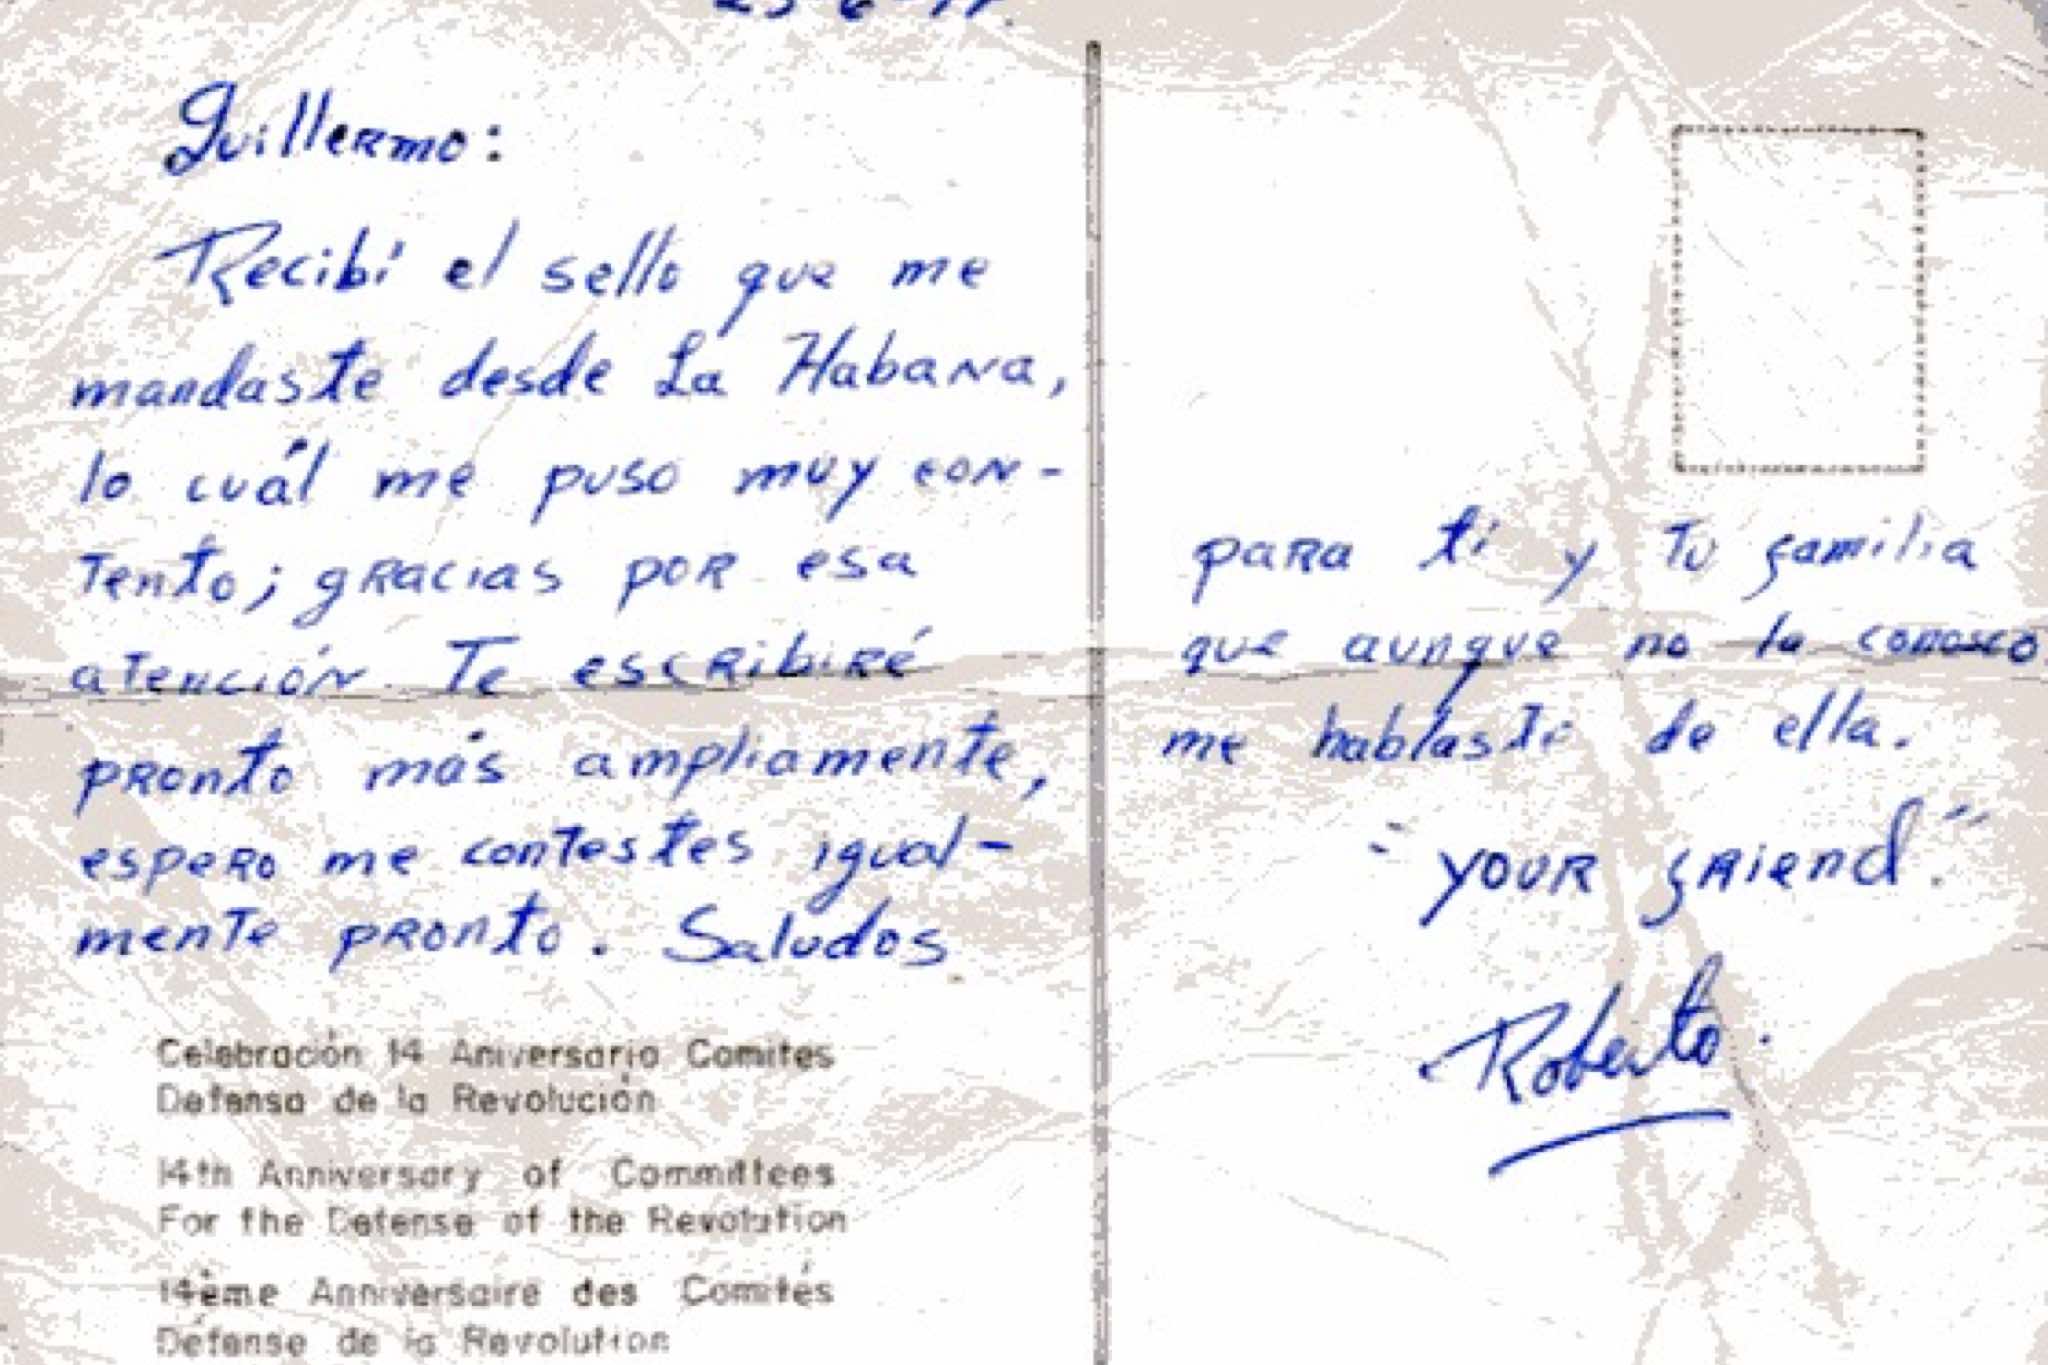 Guillermo:
Recibí el sello que me
mandaste desde La Habana,
lo cuál me puso muy con-
tento; gracias por esa
atención Te escribiré
pronto más ampliamente,
espero me contestes igual-
mente pronto. Saludos
Celebración 14 Aniversario Comites
Defensa de la Revolución
14th Anniversary of Committees
For the Defense of the Revolution
14ème Anniversaire des Comités
Défense de la Revolution
para ti y tu familia
que aunque no la conosco
me hablaste de ella.
"your friend."
Roberto.